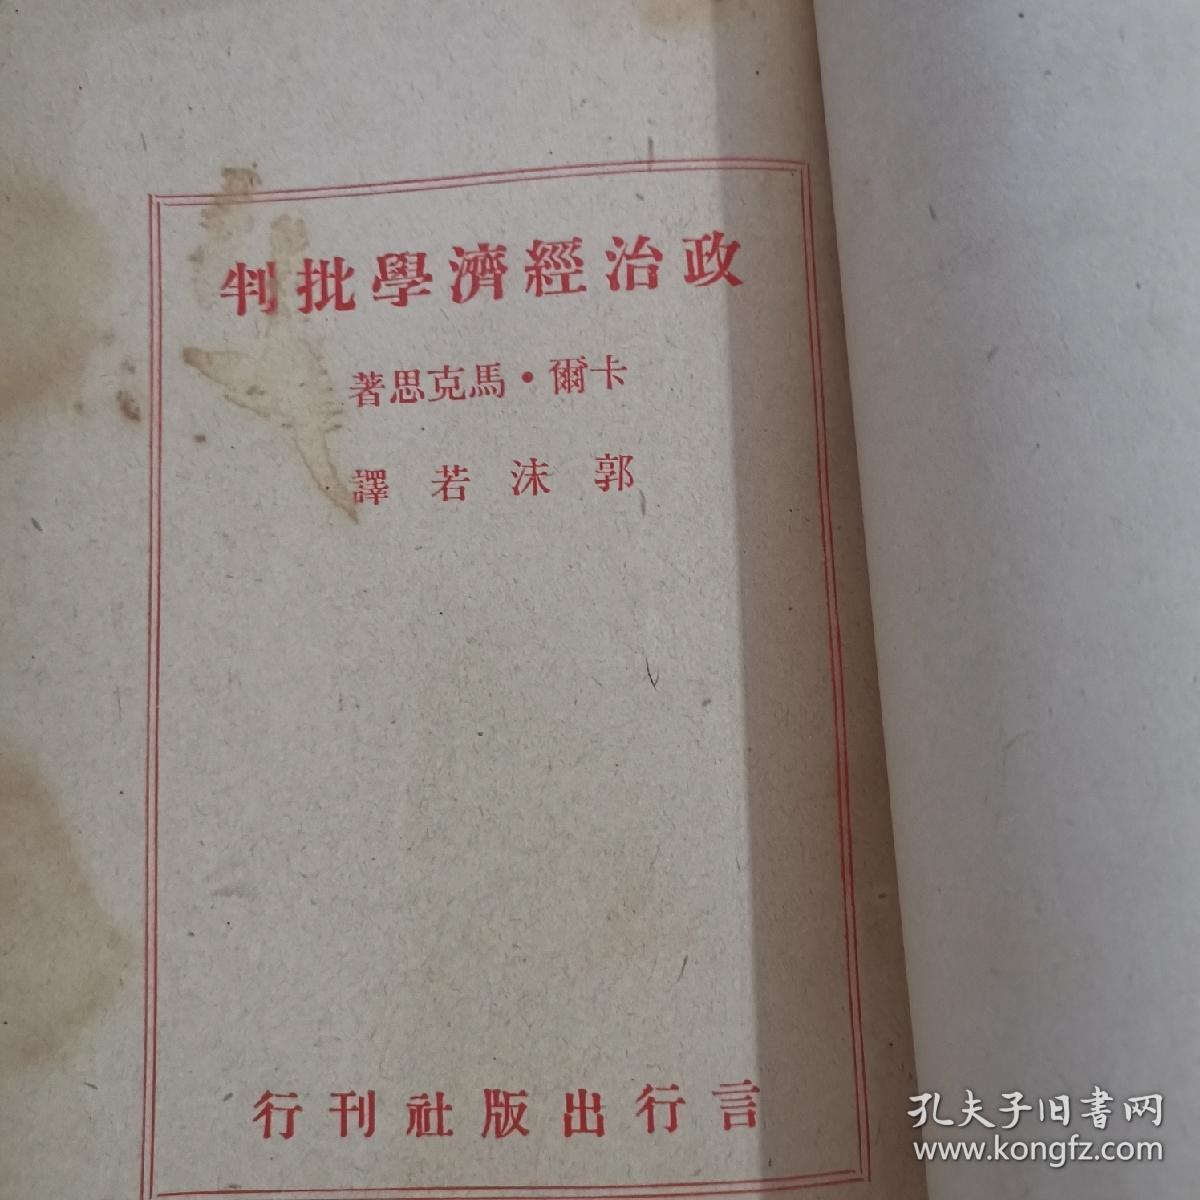 政治經濟學批判
卡爾・馬克思著
郭沫若譯
言行出版社刊行
孔夫子旧書网
www.kongfz.com